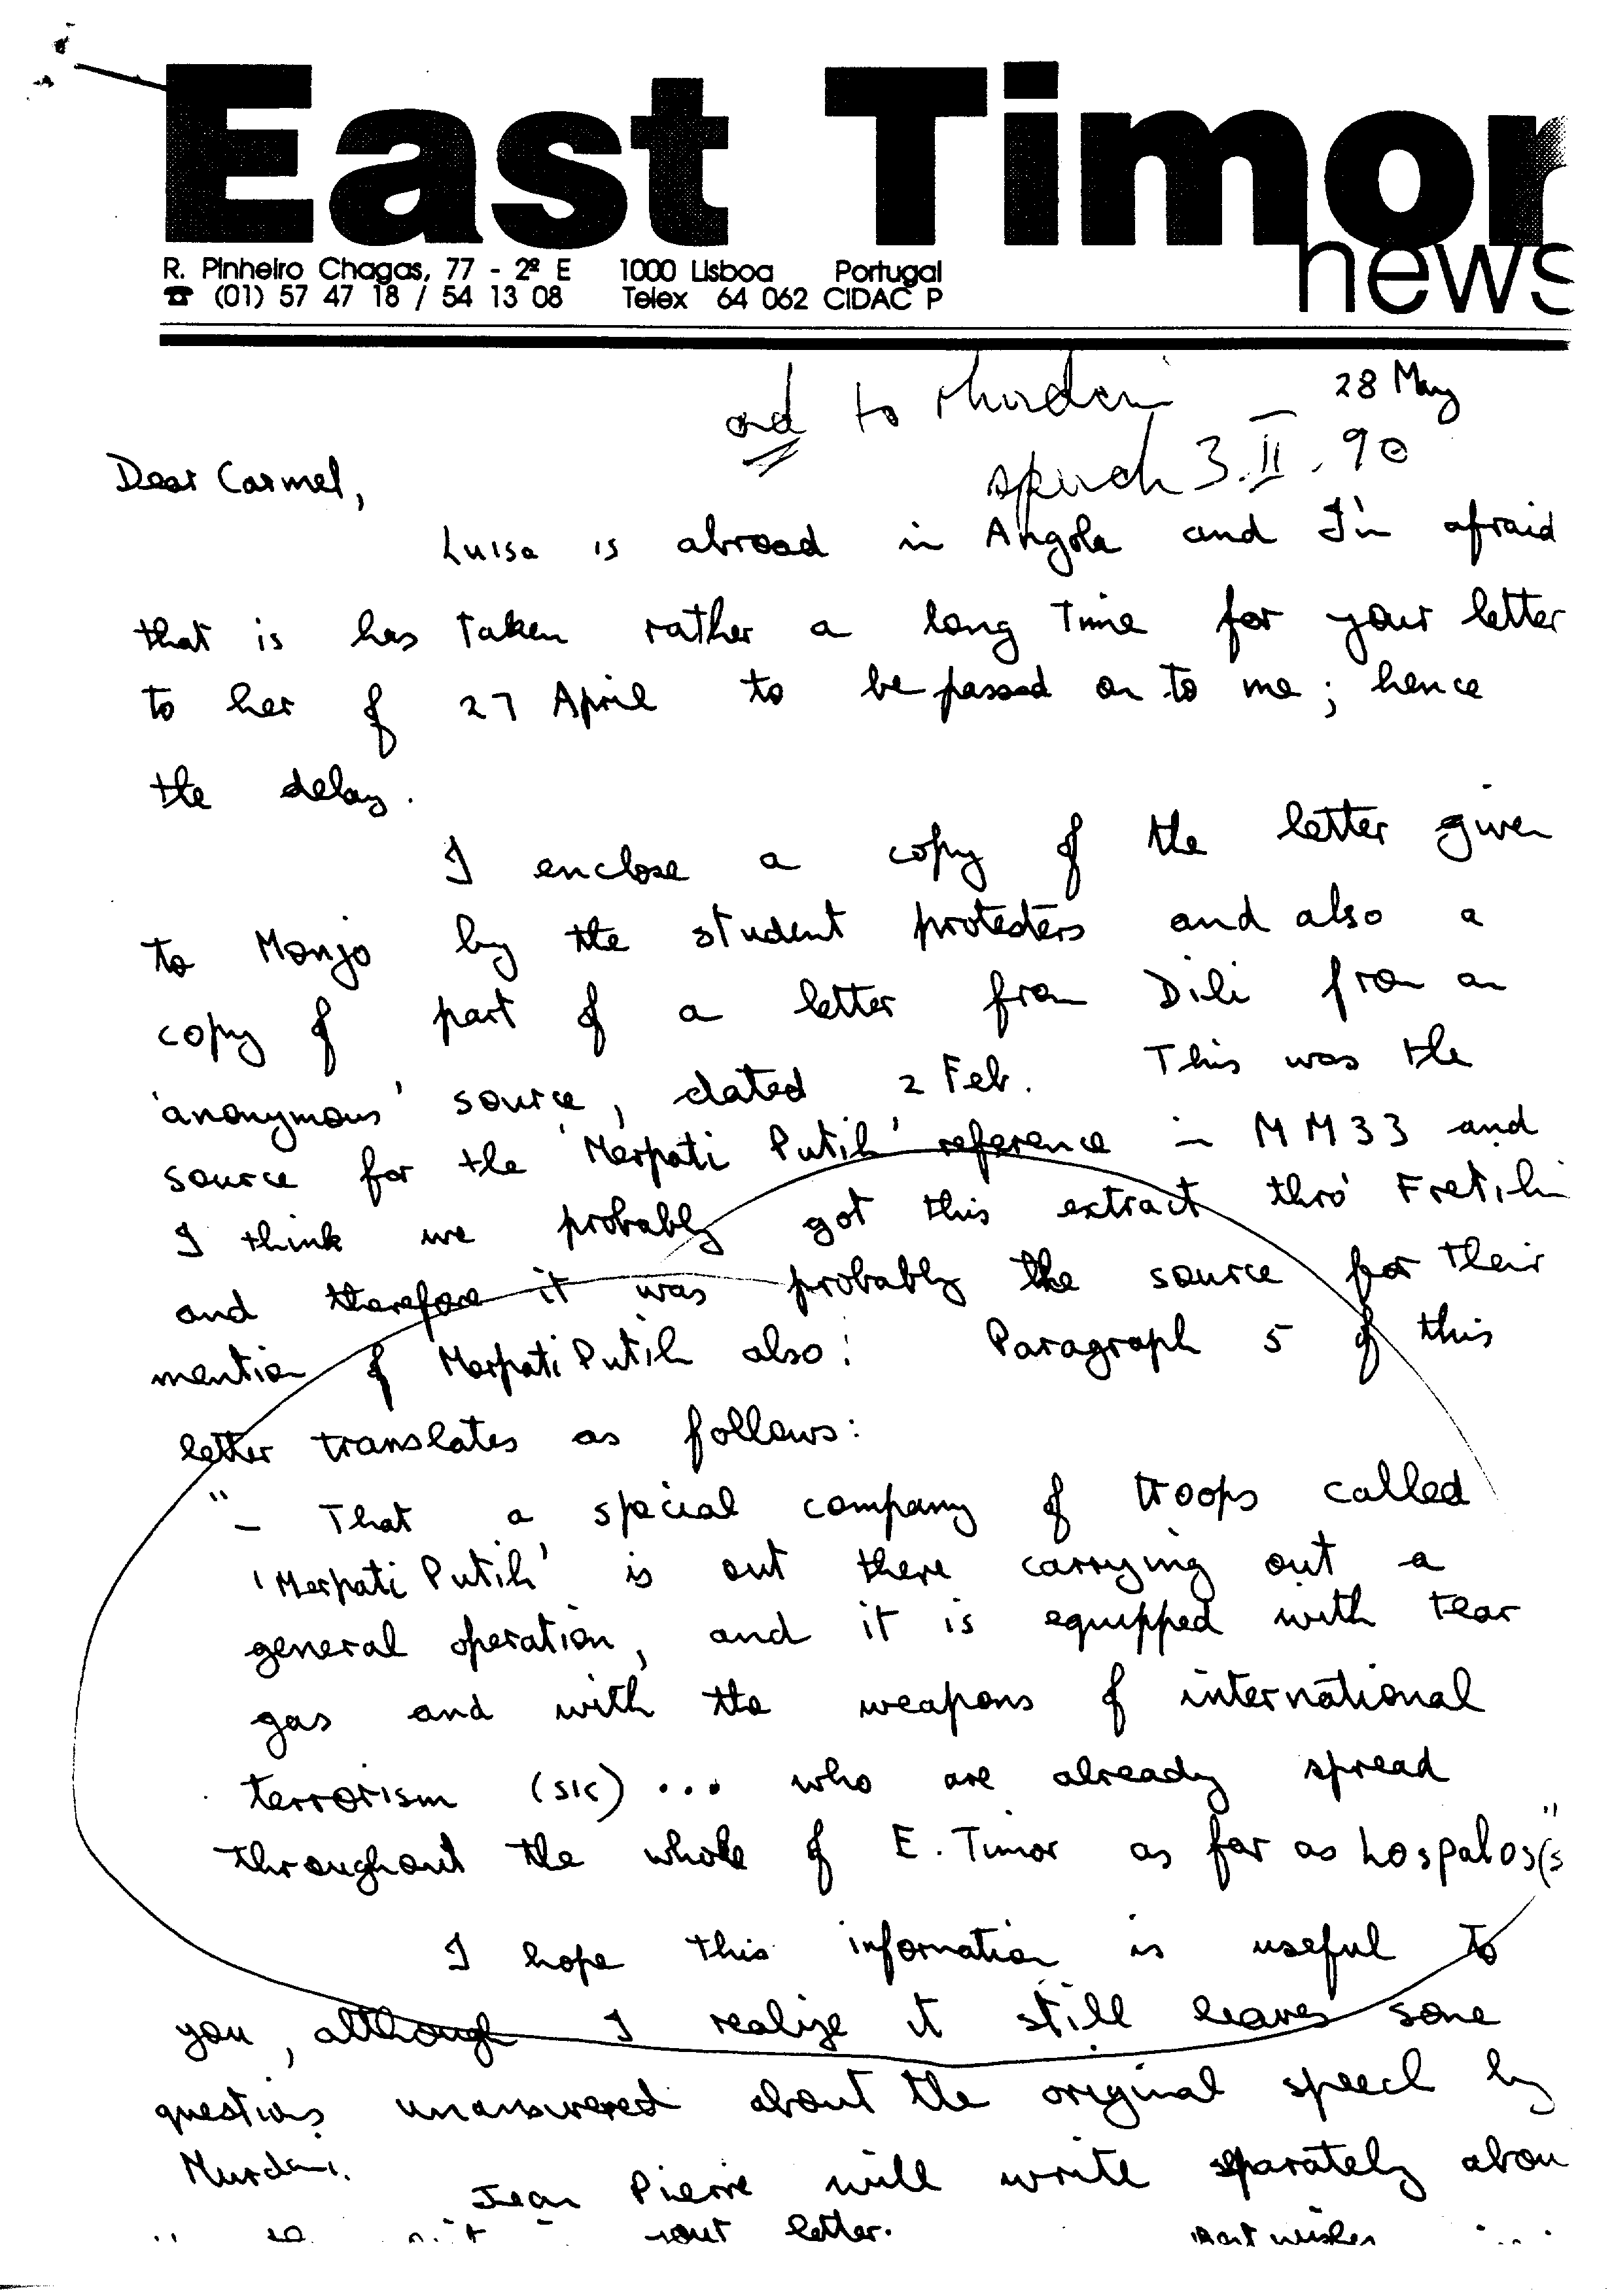 East Timor
news
R. Pinheiro Chagas, 77 - 2º E 1000 Lisboa Portugal
☎ (01) 57 47 18 / 54 13 08 Telex 64 062 CIDAC P
28 May
add to Murdani
speech 3.II.90
Dear Carmel,
Luisa is abroad in Angola and I'm afraid
that is has taken rather a long time for your letter
to her of 27 April to be passed on to me; hence
the delay.
I enclose a copy of the letter given
to Monjo by the student protesters and also a
copy of part of a letter from Dili from an
'anonymous' source, dated 2 Feb. This was the
source for the 'Merpati Putih' reference in MM33 and
I think we probably got this extract thro' Fretilin
and therefore it was probably the source for their
mention of Merpati Putih also! Paragraph 5 of this
letter translates as follows:
"- That a special company of troops called
'Merpati Putih' is out there carrying out a
general operation, and it is equipped with tear
gas and with the weapons of international
terrorism (sic) ... who are already spread
throughout the whole of E. Timor as far as Lospalos(s"
I hope this information is useful to
you, although I realize it still leaves some
questions unanswered about the original speech by
Murdani.
Jean Pierre will write separately abou
letter. Best wishes